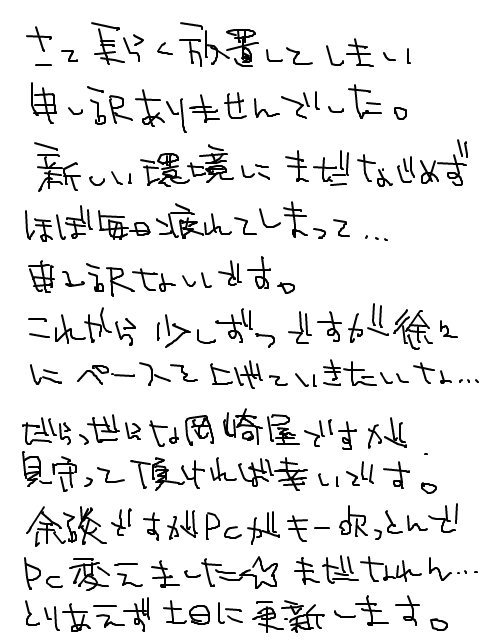 さて長らく放置してしまい
申し訳ありませんでした。
新しい環境にまだなじめず
ほぼ毎日疲れてしまって…
申し訳ないです。
これから少しずつですが徐々
にペースを上げていきたいな…
だらっだらな岡崎屋ですが
見守って頂ければ幸いです。
余談ですがPCがキー吹っとんで
PC変えました☆まだなれん…
とりあえず土日に更新します。